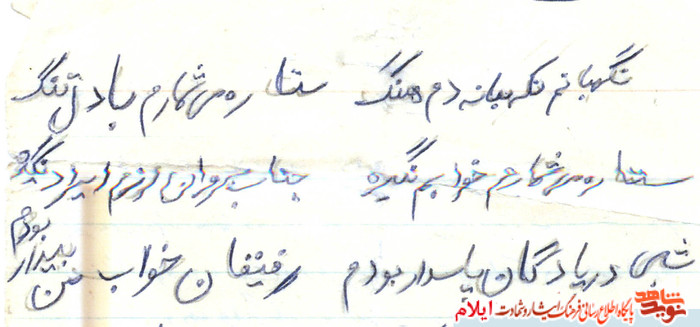 نگهبانم نگهبانه دم هنگ ستاره می شمارم با دل تنگ
ستاره می شمارم خوابم نگیره جناب سروان ازم ایراد نگیره
شبی در پادگان پاسدار بودم رفیقان خواب من بیدار بودم
نوید شاهد
پایگاه اطلاع رسانی فرهنگ ایثار و شهادت ایلام